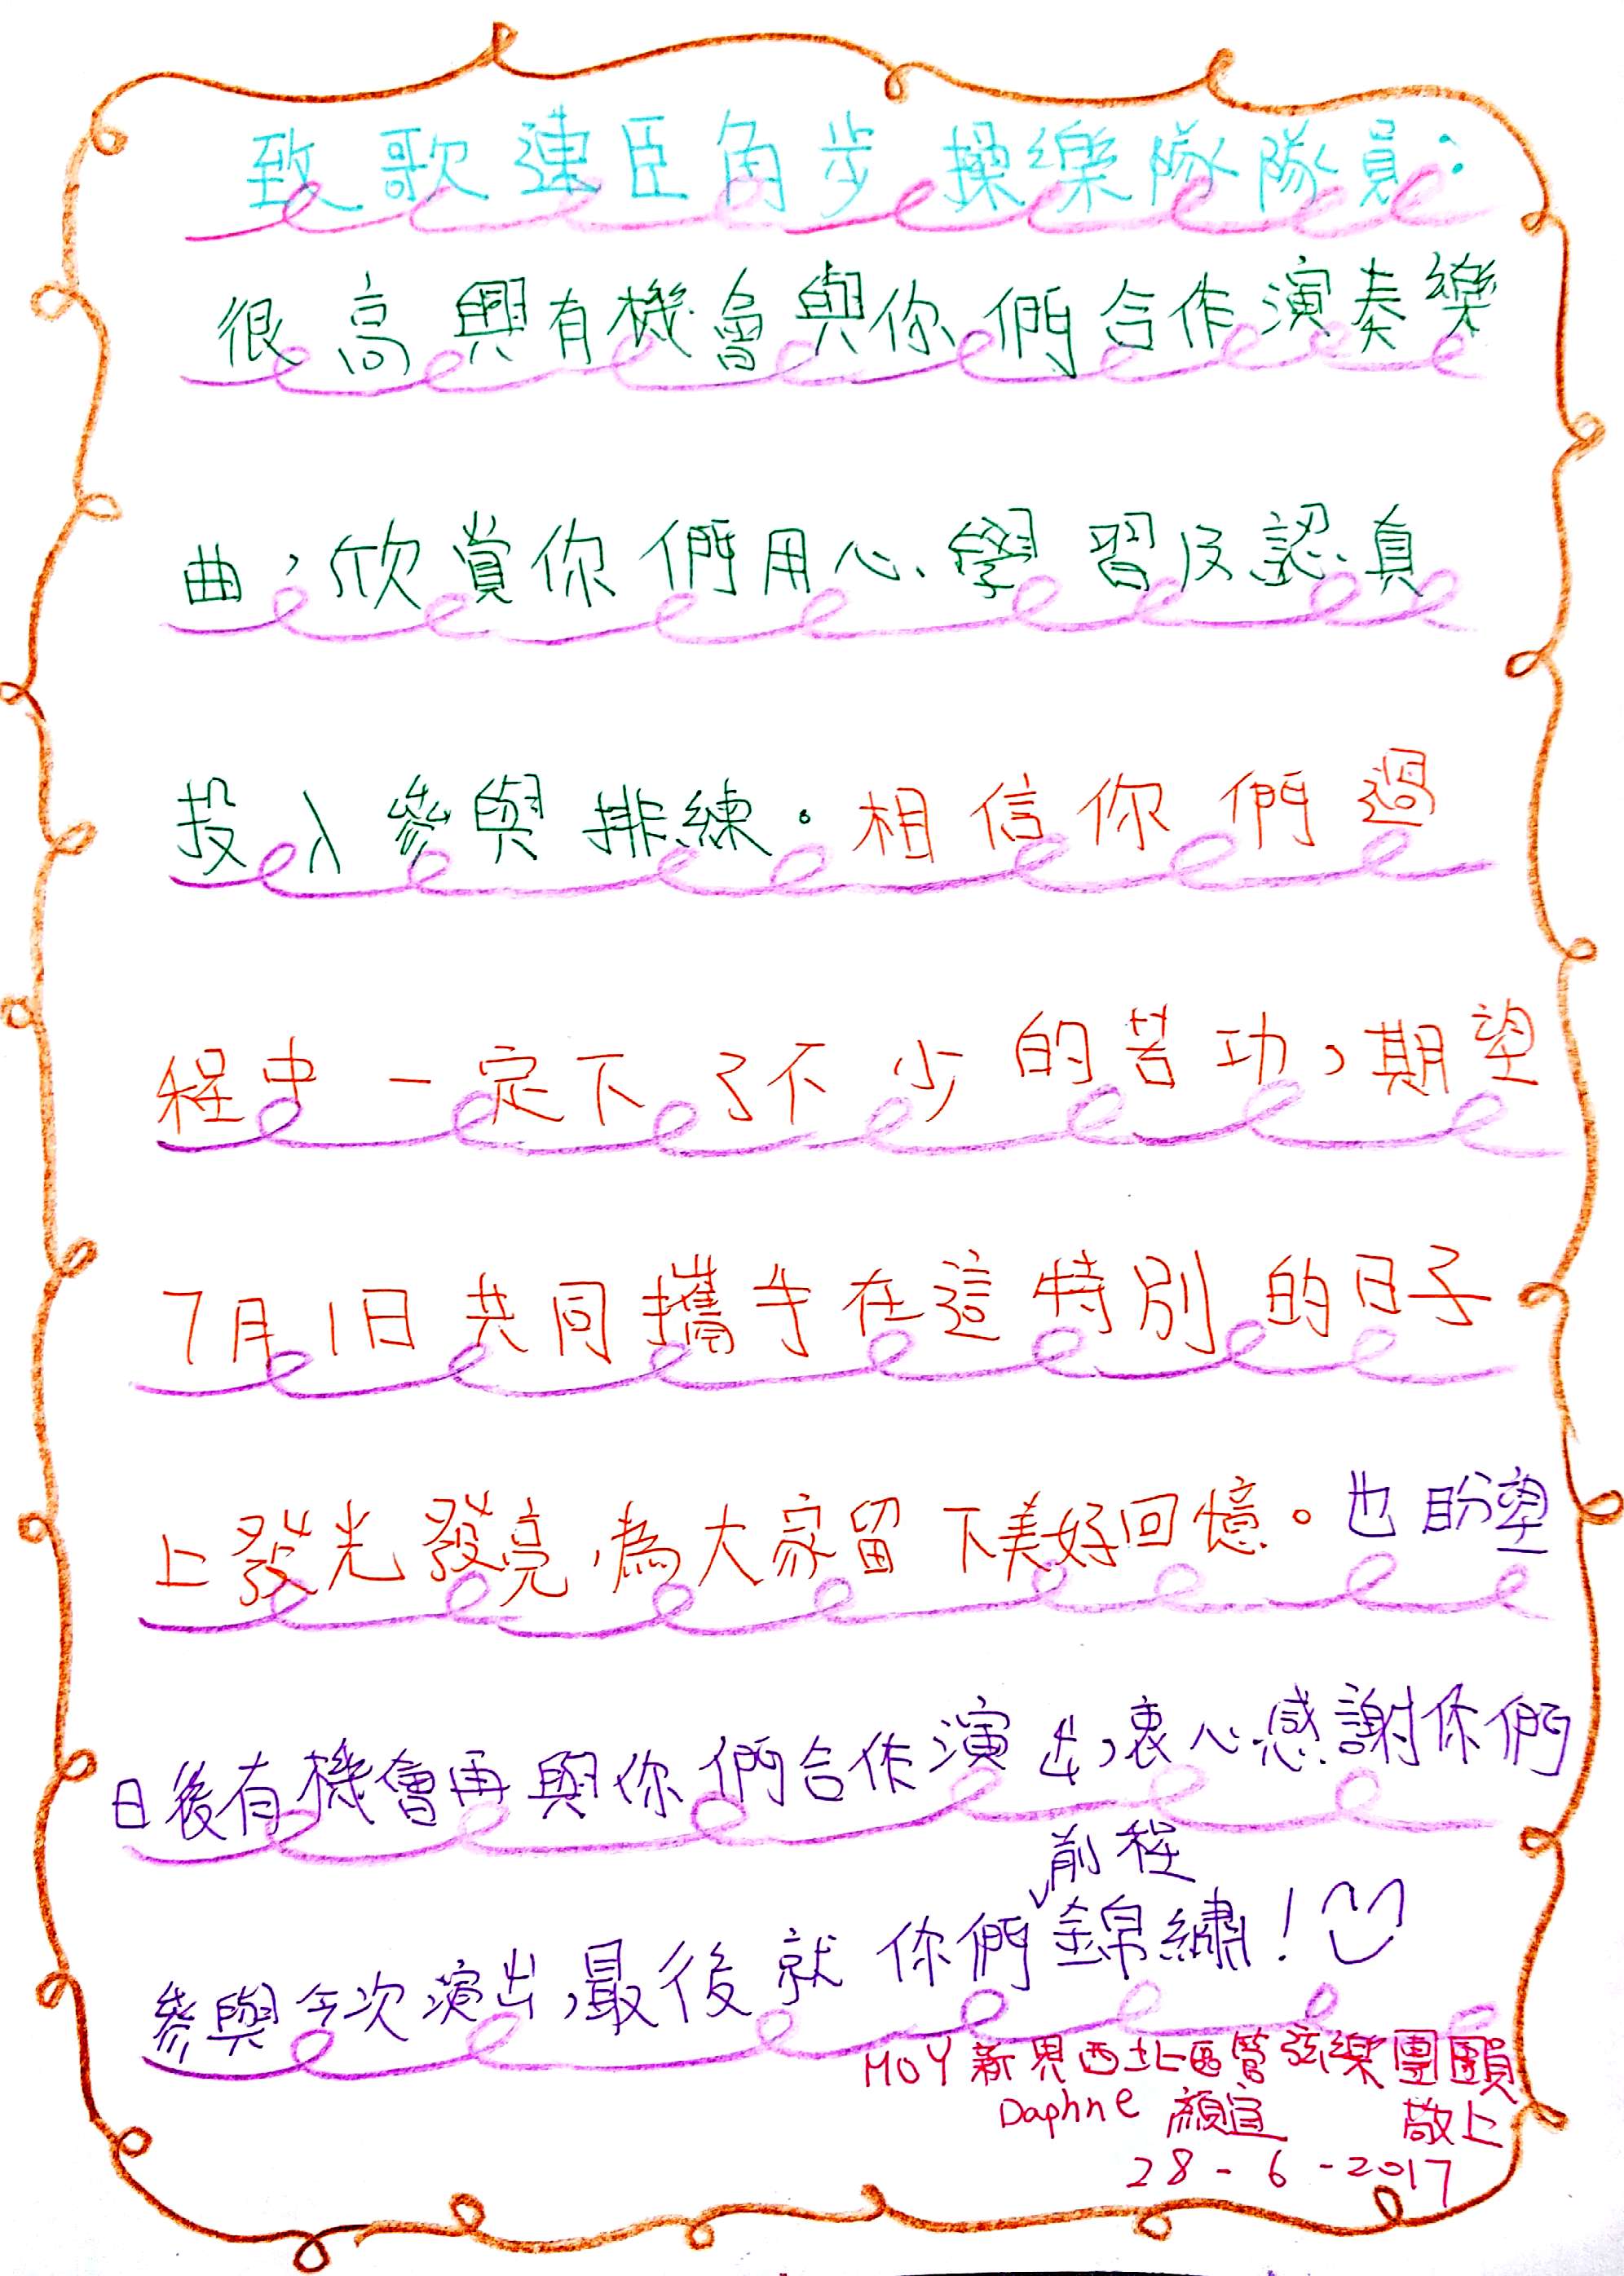 致歌連臣角步操樂隊隊員：
很高興有機會與你們合作演奏樂
曲，欣賞你們用心學習及認真
投入參與排練。相信你們過
程中一定下了不少的苦功，期望
7月1日共同攜手在這特別的日子
上發光發亮，為大家留下美好回憶。也盼望
日後有機會再與你們合作演出，衷心感謝你們
前程
參與今次演出，最後就你們錦繡！
MOY新界西北區管弦樂團團員
Daphne 顏宜 敬上
28-6-2017